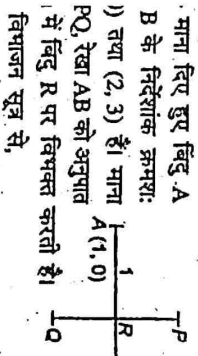 माना दिए हुए बिंदु A
B के निर्देशांक क्रमश:
) तथा (2, 3) हैं। माना
PQ, रेखा AB को अनुपात
में बिंदु R पर विभक्त करती है।
विभाजन सूत्र से,
P
1
R
A (1, 0)
Q